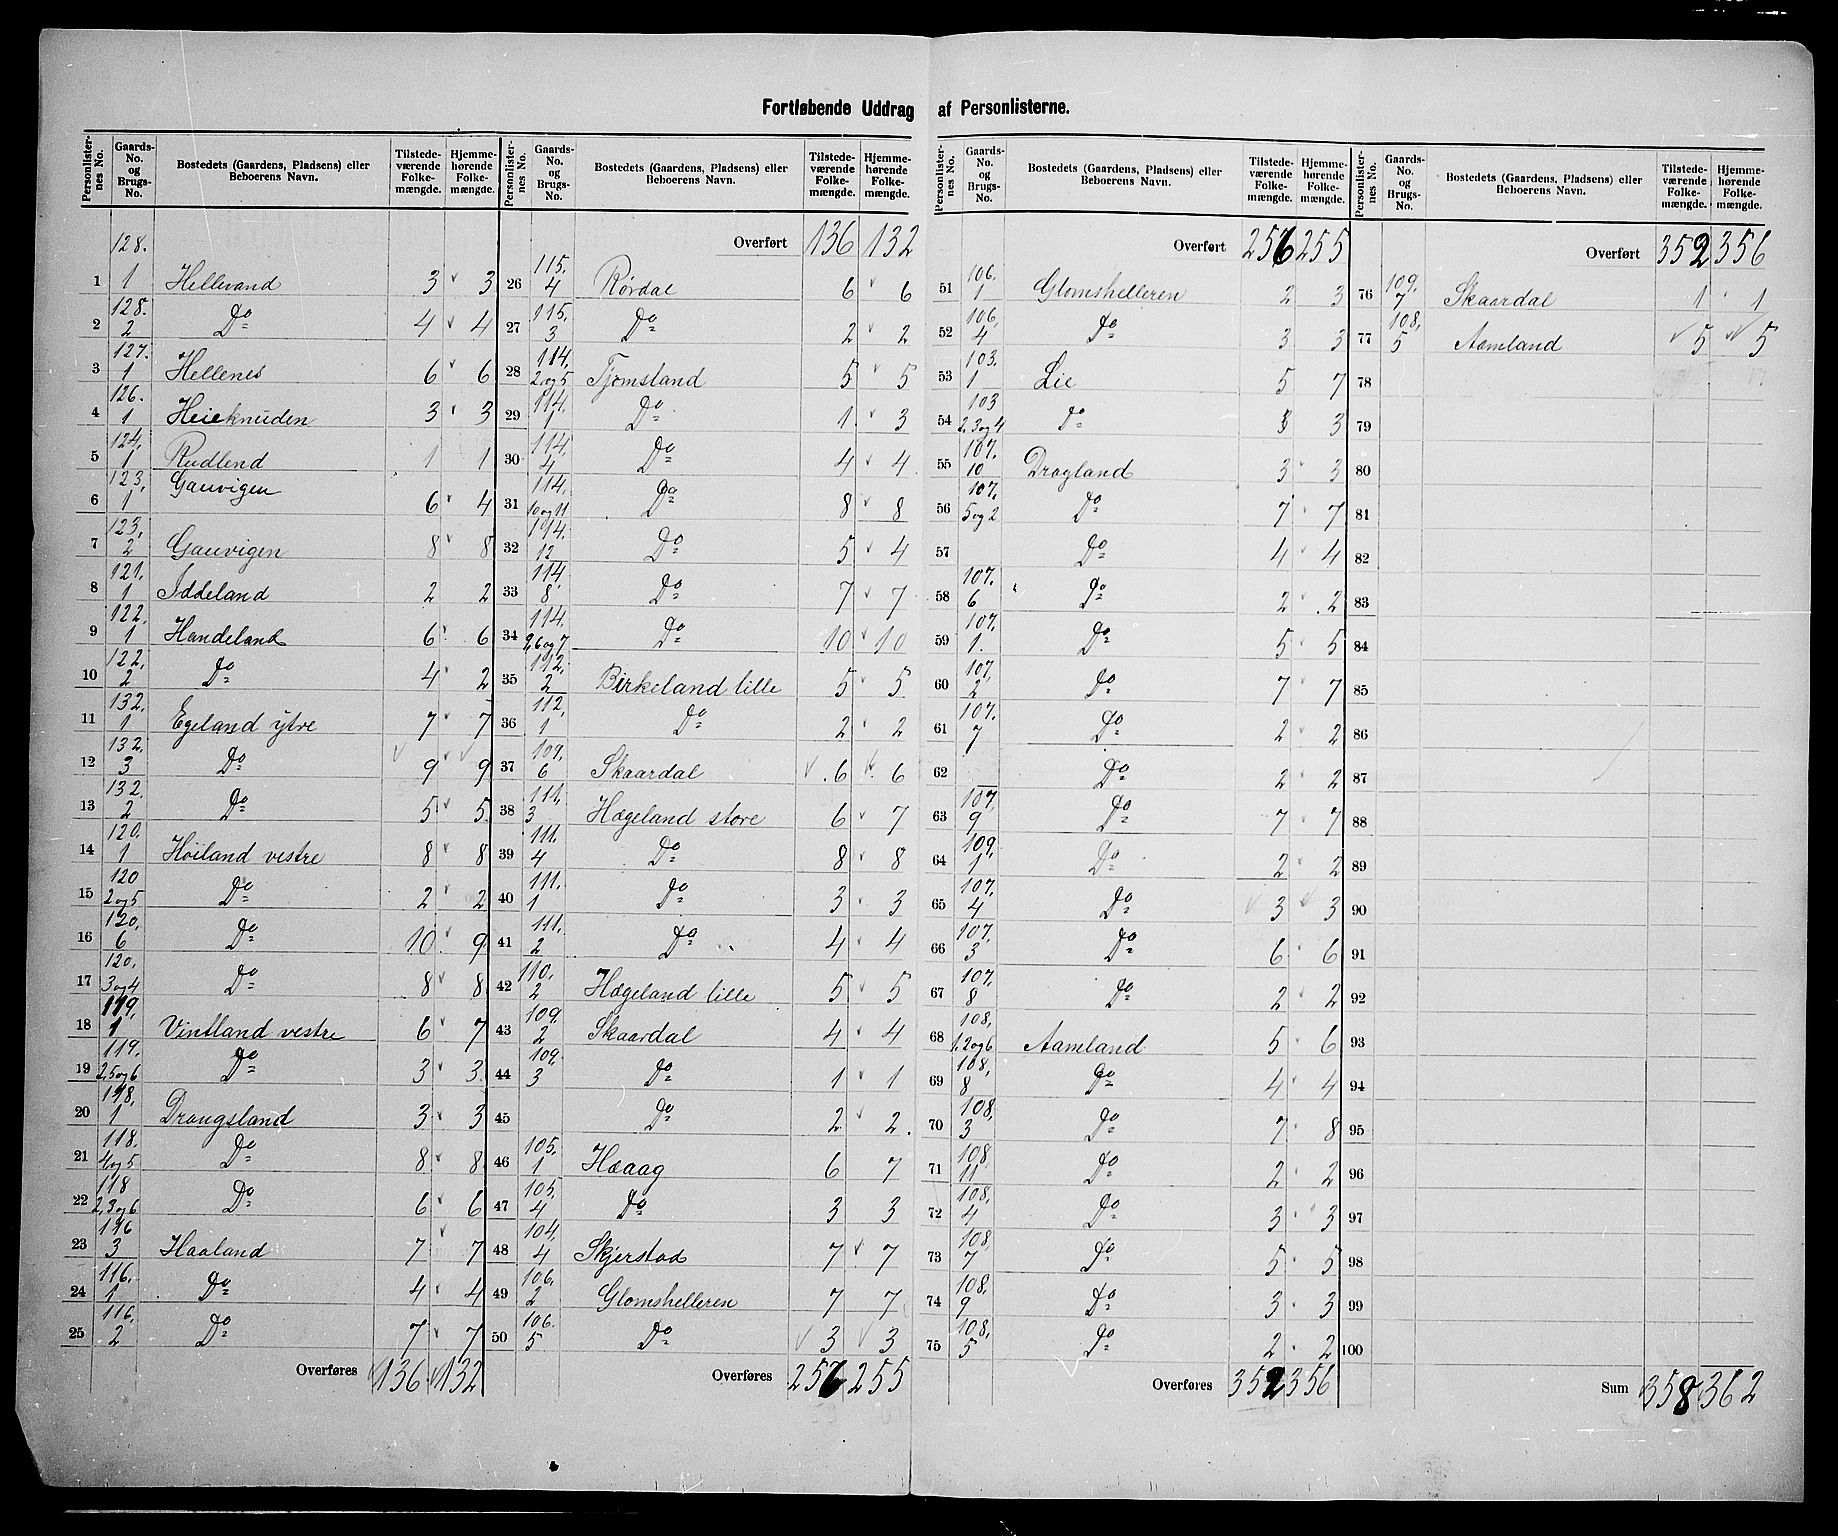 Fortløbende Uddrag af Personlisterne.
Personlister-nes No. | Gaards-No. og Brugs-No. | Bostedets (Gaardens, Pladsens) eller Beboerens Navn. | Tilstede-værende Folke-mængde. | Hjemme-hørende Folke-mængde.
1 | 128. 1 | Hellevand | 3 | 3
2 | 128. 2 | Do | 4 | 4
3 | 127. 1 | Hellenes | 6 | 6
4 | 126. 1 | Heieknuden | 3 | 3
5 | 124, 1 | Rudlend | 1 | 1
6 | 123, 1 | Gauvigen | 6 | 4
7 | 123, 2 | Gauvigen | 8 | 8
8 | 121. 1 | Iddeland | 2 | 2
9 | 122. 1 | Handeland | 6 | 6
10 | 122. 2 | Do | 4 | 2
11 | 132. 1 | Egeland ytre | 7 | 7
12 | 132. 3 | Do | 9 | 9
13 | 132. 2 | Do | 5 | 5
14 | 120. 1 | Høiland vestre | 8 | 8
15 | 120 2og5 | Do | 2 | 2
16 | 120, 6 | Do | 10 | 9
17 | 120. 3og4 | Do | 8 | 8
18 | 119, 1 | Vintland vestre | 6 | 7
19 | 119. 2,5og6 | Do | 3 | 3
20 | 118, 1 | Drangsland | 3 | 3
21 | 118. 4og5 | Do | 8 | 8
22 | 118 2,3og6 | Do | 6 | 6
23 | 116 3 | Haaland | 7 | 7
24 | 116. 1 | Do | 4 | 4
25 | 116. 2 | Do | 7 | 7
Overføres 136 132
Personlister-nes No. | Gaards-No. og Brugs-No. | Bostedets (Gaardens, Pladsens) eller Beboerens Navn. | Tilstede-værende Folke-mængde. | Hjemme-hørende Folke-mængde.
Overført 136 132
26 | 115. 4 | Rørdal | 6 | 6
27 | 115. 3 | Do | 2 | 2
28 | 114, 2og5 | Tjomsland | 5 | 5
29 | 114. 1 | Do | 1 | 3
30 | 114. 4 | Do | 4 | 4
31 | 114. 10og11 | Do | 8 | 8
32 | 114. 12 | Do | 5 | 4
33 | 114. 8 | Do | 7 | 7
34 | 114. 6og7 | Do | 10 | 10
35 | 112, 2 | Birkeland lille | 5 | 5
36 | 112. 1 | Do | 2 | 2
37 | 109, 6 | Skaardal | 6 | 6
38 | 111. 3 | Hægeland store | 6 | 7
39 | 111. 4 | Do | 8 | 8
40 | 111. 1 | Do | 3 | 3
41 | 111. 2 | Do | 4 | 4
42 | 110. 2 | Hægeland lille | 5 | 5
43 | 109. 2 | Skaardal | 4 | 4
44 | 109. 3 | Do | 1 | 1
45 | Do | 2 | 2
46 | 105. 1 | Hæaag | 6 | 7
47 | 105, 4 | Do | 3 | 3
48 | 104, 4 | Skjerstad | 7 | 7
49 | 106. 2 | Glomshelleren | 7 | 7
50 | 106. 5 | Do | 3 | 3
Overføres 256 255
Personlister-nes No. | Gaards-No. og Brugs-No. | Bostedets (Gaardens, Pladsens) eller Beboerens Navn. | Tilstede-værende Folke-mængde. | Hjemme-hørende Folke-mængde.
Overført 256 255
51 | 106. 1 | Glomshelleren | 2 | 3
52 | 106, 4 | Do | 3 | 3
53 | 103. 1 | Lie | 5 | 7
54 | 103 2,3og4 | Do | 3 | 3
55 | 107. 10 | Dragland | 3 | 3
56 | 107. 5og2 | Do | 7 | 7
57 | Do | 4 | 4
58 | 107. 6 | Do | 2 | 2
59 | 107. 1. | Do | 5 | 5
60 | 107, 2 | Do | 7 | 7
61 | 107. 7 | Do | 2 | 2
62 | Do | 2 | 2
63 | 107, 9 | Do | 7 | 7
64 | 109, 1 | Do | 2 | 2
65 | 107. 4 | Do | 3 | 3
66 | 107. 3 | Do | 6 | 6
67 | 107. 8 | Do | 2 | 2
68 | 108, 1,2og6 | Aamland | 5 | 6
69 | 108, 8 | Do | 4 | 4
70 | 108, 3 | Do | 7 | 8
71 | 108, 11 | Do | 2 | 2
72 | 108. 4 | Do | 3 | 3
73 | 108, 7 | Do | 5 | 5
74 | 108. 9 | Do | 3 | 3
75 | 108. 5 | Do | 2 | 2
Overføres 352 356
Personlister-nes No. | Gaards-No. og Brugs-No. | Bostedets (Gaardens, Pladsens) eller Beboerens Navn. | Tilstede-værende Folke-mængde. | Hjemme-hørende Folke-mængde.
Overført 352 356
76 | 109, 7 | Skaardal | 1 | 1
77 | 108, 5 | Aamland | 5 | 5
78
79
80
81
82
83
84
85
86
87
88
89
90
91
92
93
94
95
96
97
98
99
100
Sum 358 362